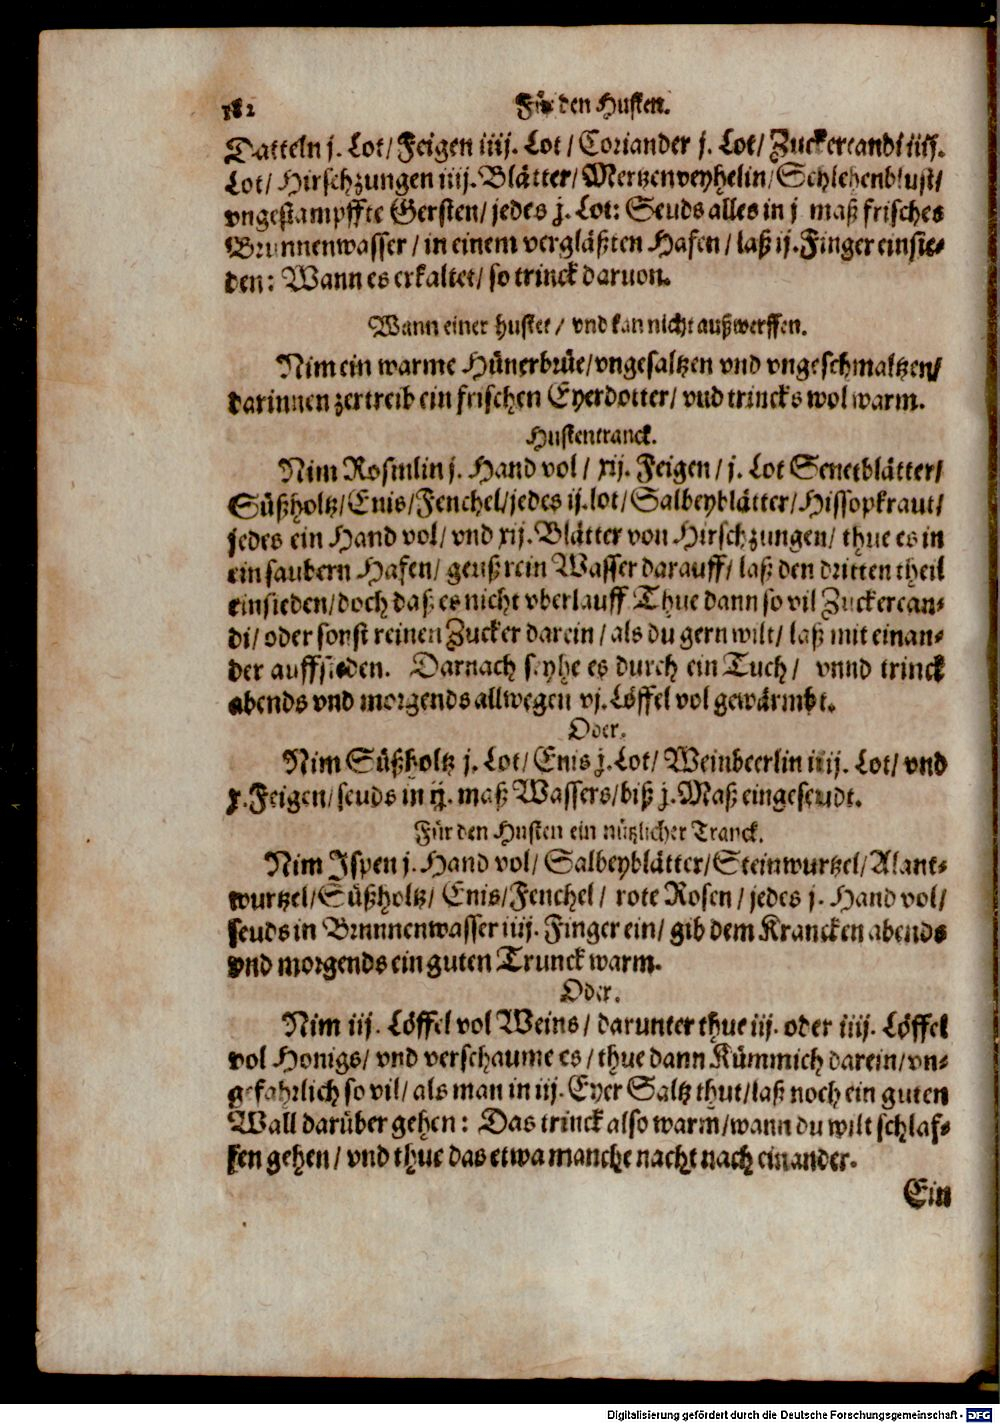 182 Für den Husten.
Datteln j. Lot/ Feigen iiij. Lot / Coriander j. Lot/ Zuckercandi iiij.
Lot/ Hirschzungen iiij. Blätter/ Mertzenveyhelin/ Schlehenblust/
vngestampffte Gersten/ jedes j. Lot: Seuds alles in j maß frisches
Brunnenwasser / in einem vergläßten Hafen / laß ij. Finger einsie-
den: Wann es erkaltet/ so trinck daruon.
Wann einer hustet / vnd kan nicht außwerffen.
Nim ein warme Hünerbrüe/ vngesaltzen vnd vngeschmaltzen/
darinnen zertreib ein frischen Eyerdotter/ vnd trincks wol warm.
Hustentranck.
Nim Rosinlin j. Hand vol / xij. Feigen / j. Lot Senetblätter/
Süßholtz/ Enis/ Fenchel/ jedes ij. lot/ Salbeyblätter/ Hissopkraut/
jedes ein Hand vol/ vnd xij. Blätter von Hirschzungen/ thue es in
ein saubern Hafen/ geuß rein Wasser darauff/ laß den dritten theil
einsieden/ doch daß es nicht vberlauff Thue dann so vil Zuckercan-
di/ oder sonst reinen Zucker darein / als du gern wilt/ laß mit einan-
der auffsieden. Darnach seyhe es durch ein Tuch/ vnnd trinck
abends vnd morgends allwegen vj. Löffel vol gewärmbt.
Oder.
Nim Süßholtz j. Lot/ Enis j. Lot/ Weinbeerlin iiij. Lot/ vnd
x. Feigen/ seuds in ij. maß Wassers/ biß j. Maß eingeseudt.
Für den Husten ein nützlicher Tranck.
Nim Ispen j. Hand vol/ Salbeyblätter/ Steinwurtzel/ Alant-
wurtzel/ Süßholtz/ Enis/ Fenchel / rote Rosen / jedes j. Hand vol/
seuds in Brunnenwasser iiij. Finger ein/ gib dem Krancken abends
vnd morgends ein guten Trunck warm.
Oder.
Nim iij. Löffel vol Weins / darunter thue iij. oder iiij. Löffel
vol Honigs/ vnd verschaume es / thue dann Kümmich darein/ vn-
gefahrlich so vil/ als man in iij. Eyer Saltz thut/ laß noch ein guten
Wall darüber gehen: Das trinck also warm/ wann du wilt schlaf-
fen gehen/ vnd thue das etwa manche nacht nach einander.
Ein
Digitalisierung gefördert durch die Deutsche Forschungsgemeinschaft - DFG